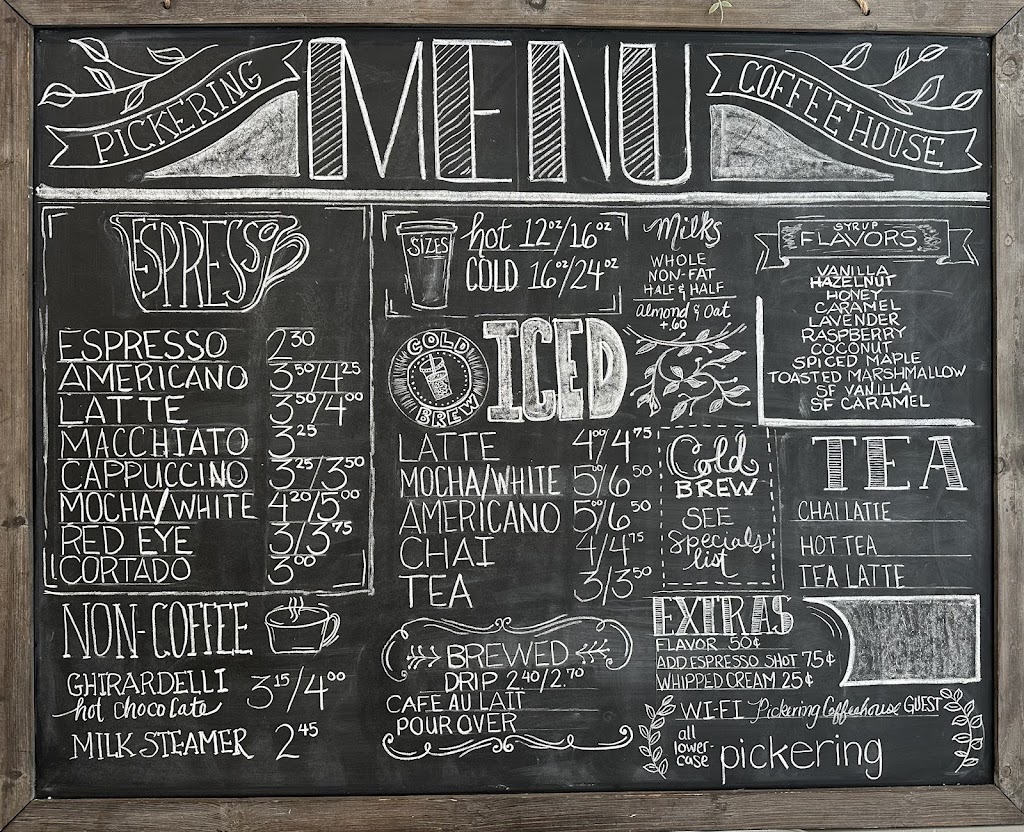 PICKERING
MENU
COFFEE HOUSE
ESPRESSO
ESPRESSO 2.30
AMERICANO 3.50/4.25
LATTE 3.50/4.00
MACCHIATO 3.25
CAPPUCCINO 3.25/3.50
MOCHA/WHITE 4.20/5.00
RED EYE 3/3.75
CORTADO 3.00
NON-COFFEE
GHIRARDELLI
hot chocolate 3.15/4.00
MILK STEAMER 2.45
SIZES
hot 12oz/16oz
COLD 16oz/24oz
COLD
BREW
ICED
LATTE 4.00/4.75
MOCHA/WHITE 5.00/6.50
AMERICANO 5.00/6.50
CHAI 4/4.75
TEA 3/3.50
BREWED
DRIP 2.40/2.70
CAFE AU LAIT
POUR OVER
Milks
WHOLE
NON-FAT
HALF & HALF
Almond & Oat
+.60
Cold
BREW
SEE
Specials
list
SYRUP
FLAVORS
VANILLA
HAZELNUT
HONEY
CARAMEL
LAVENDER
RASPBERRY
COCONUT
SPICED MAPLE
TOASTED MARSHMALLOW
SF VANILLA
SF CARAMEL
TEA
CHAI LATTE
HOT TEA
TEA LATTE
EXTRAS
FLAVOR 50¢
ADD ESPRESSO SHOT 75¢
WHIPPED CREAM 25¢
WI-FI Pickering Coffeehouse GUEST
all
lower-
case
pickering